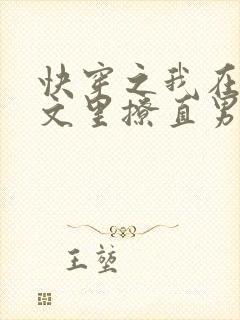 快穿之我在
文里撩直男
王堃